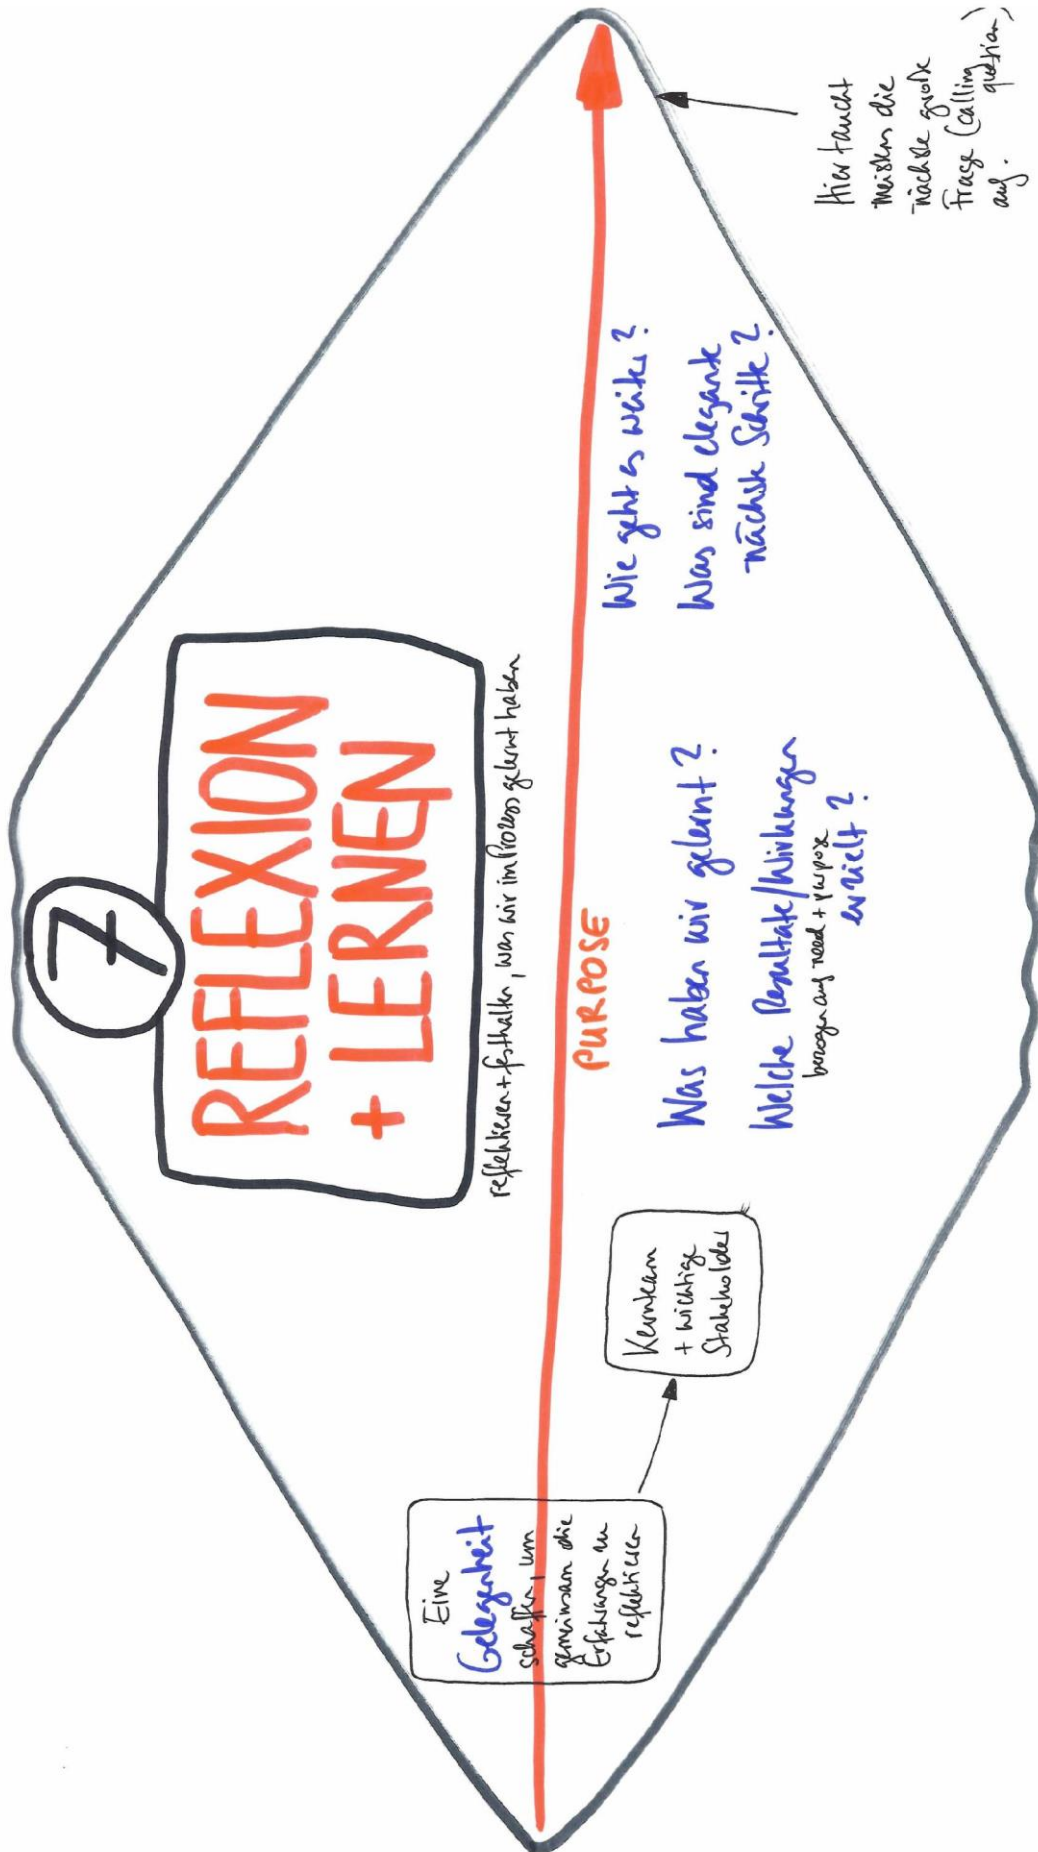 7
REFLEXION
+ LERNEN
reflektieren + festhalten, was wir im Prozess gelernt haben
PURPOSE
Eine
Gelegenheit
schaffen, um
gemeinsam die
Erfahrungen zu
reflektieren
Kernteam
+ wichtige
Stakeholder
Was haben wir gelernt?
Welche Resultate/Wirkungen
bezogen auf need + purpose
erzielt?
Wie geht es weiter?
Was sind elegante
nächste Schritte?
Hier taucht
meistens die
nächste große
Frage (calling question)
auf.